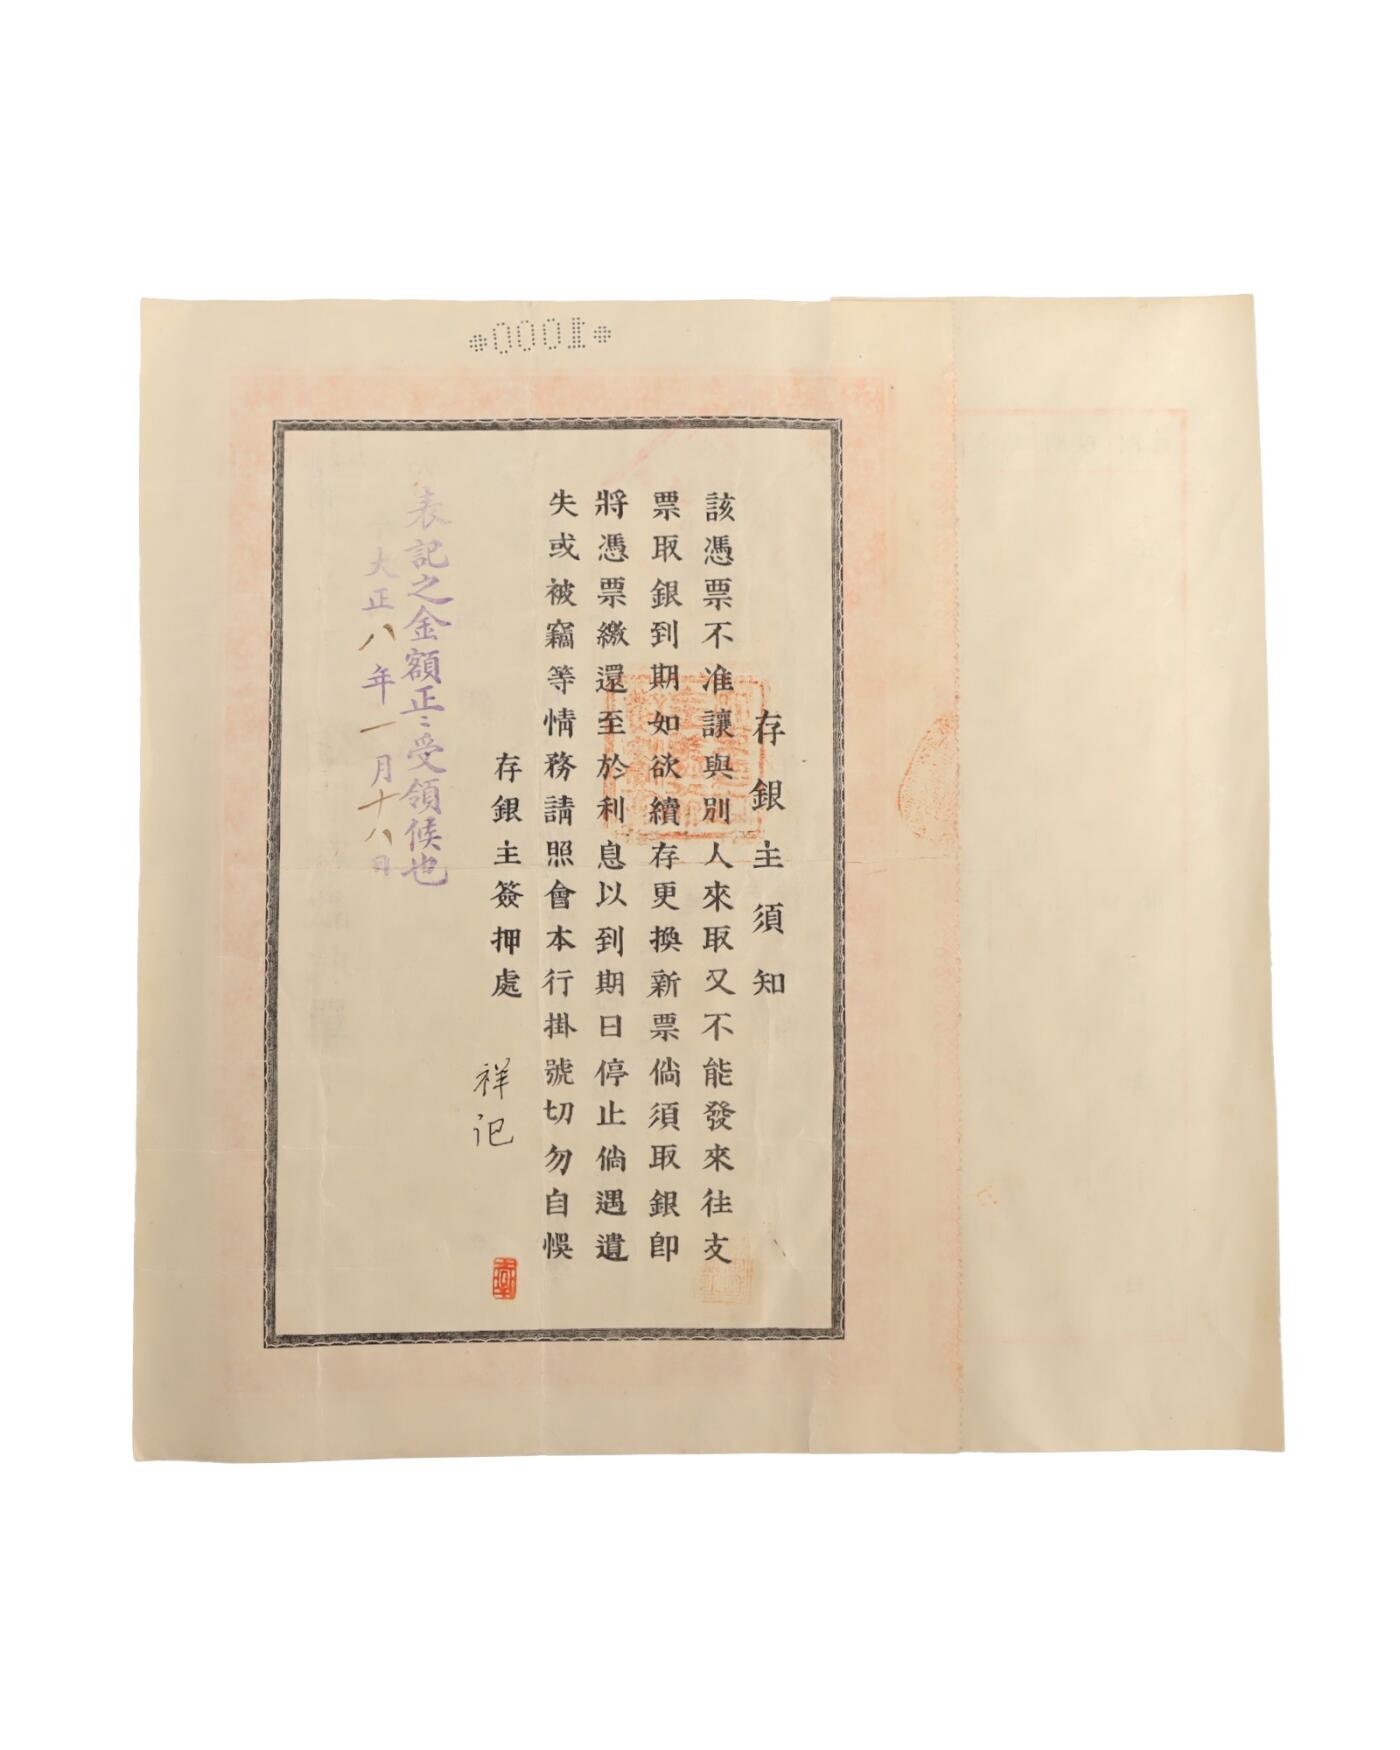 存銀主須知
該憑票不准讓與別人來取又不能發來往支
票取銀到期如欲續存更換新票倘須取銀即
將憑票繳還至於利息以到期日停止倘遇遺
失或被竊等情務請照會本行掛號切勿自悞
存銀主簽押處 祥記
表記之金額正ニ受領候也
大正八年一月十八日